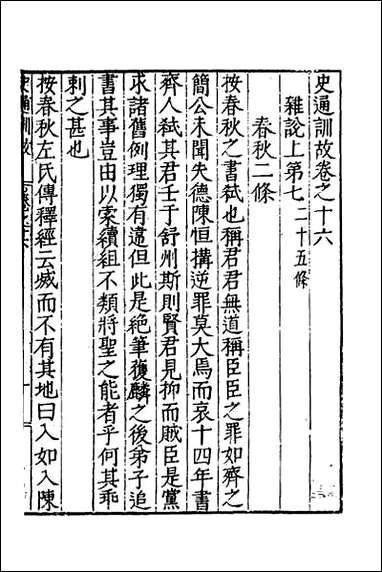 史通訓故卷之十六
雜說上第七二十五條
春秋二條
按春秋之書弒也稱君君無道稱臣臣之罪如齊之
簡公未聞失德陳恒搆逆罪莫大焉而哀十四年書
齊人弒其君壬于舒州斯則賢君見抑而賊臣是黨
求諸舊例理獨有違但此是絕筆獲麟之後弟子追
書其事豈由以索續組不類將聖之能者乎何其乖
剌之甚也
按春秋左氏傳釋經云滅而不有其地曰入如入陳
史通訓故